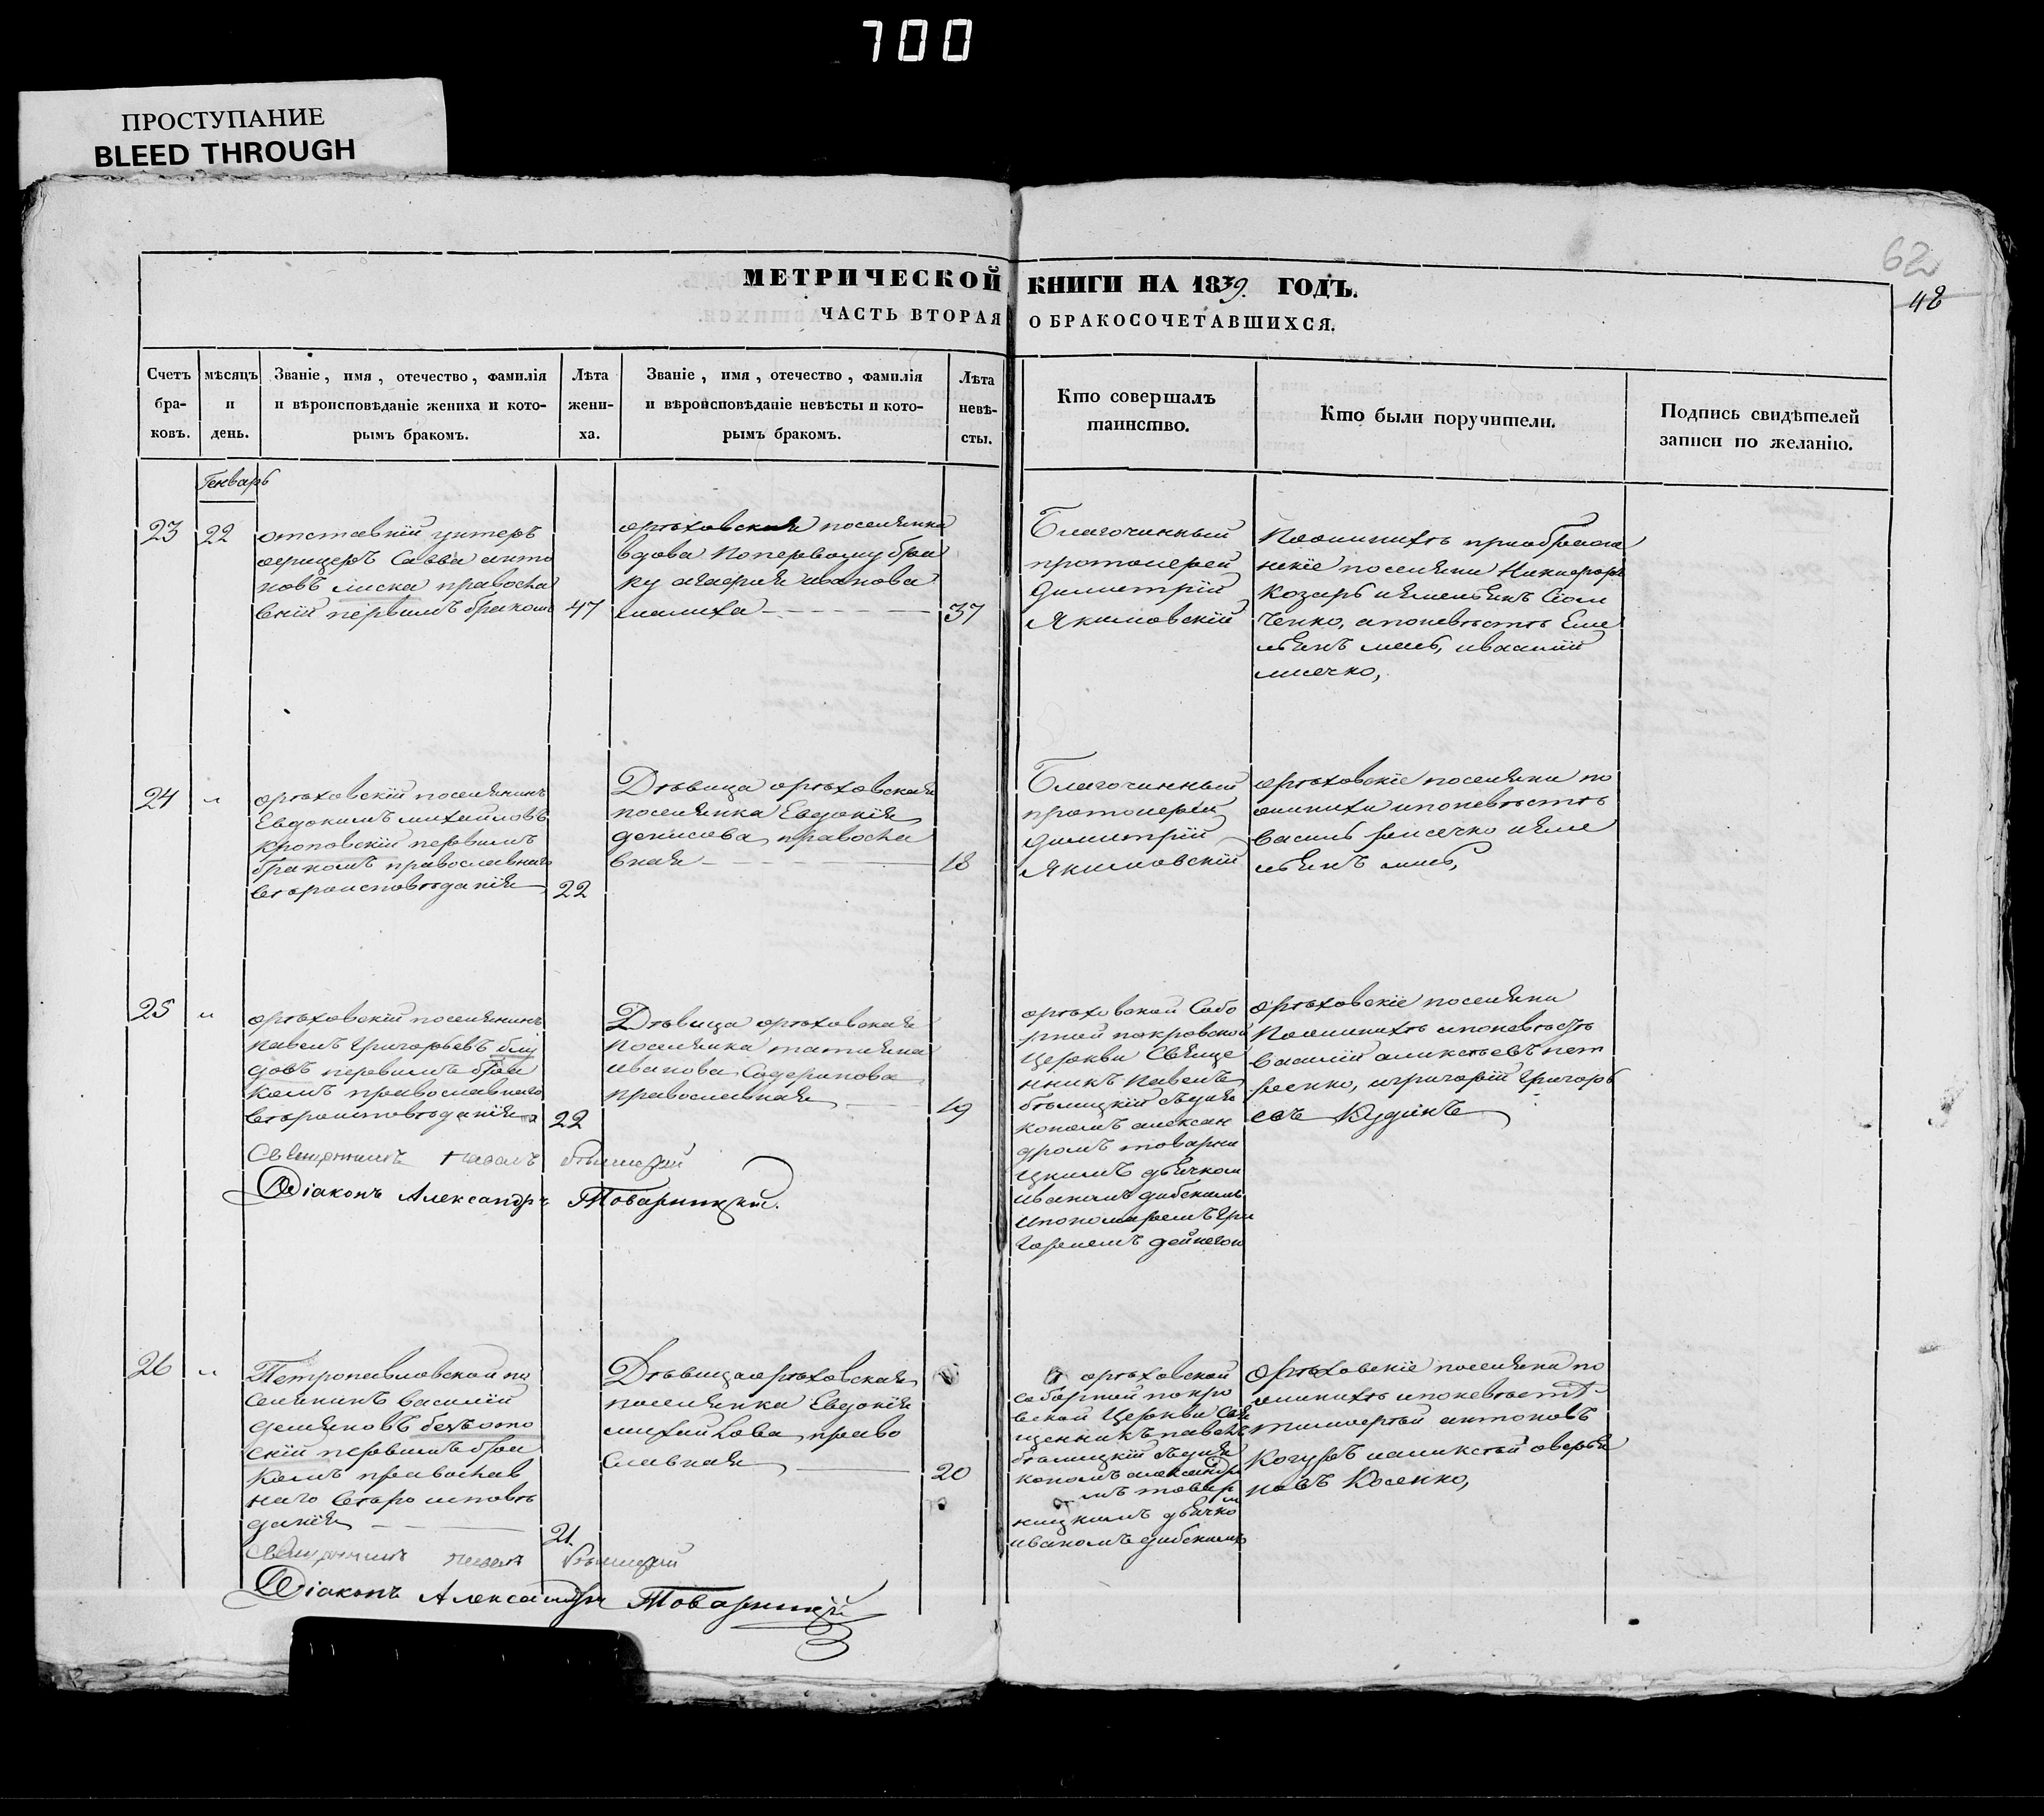 700
ПРОСТУПАНИЕ
BLEED THROUGH
62
48
МЕТРИЧЕСКОЙ КНИГИ НА 1839. ГОДЪ.
ЧАСТЬ ВТОРАЯ О БРАКОСОЧЕТАВШИХСЯ.
Счетъ бра- ковъ.
мѣсяцъ и день.
Званіе, имя, отечество, фамилія
и вѣроисповѣданіе жениха и кото-
рымъ бракомъ.
Лѣта жени- ха.
Званіе, имя, отечество, фамилія
и вѣроисповѣданіе невѣсты и кото-
рымъ бракомъ.
Лѣта невѣ- сты.
Кто совершалъ
таинство.
Кто были поручители.
Подпись свидѣтелей
записи по желанію.
Генварь
23
22
отставній унтеръ
офицеръ Савва анто
новъ лиска правосла
вній первимъ бракомъ
47
орѣховская поселянка
вдова по первому бра
ку иванова
37
Благочинный
протоіерей
Димитрій
Якимовскій
по женихѣ преображе
нскіе поселяни Никифоръ
Козарь и емельянъ
ченко, а по невѣстѣ Еме
льянъ и василій
24
"
орѣховскій поселянинъ
Евдокимъ михайловъ
кроповскій первимъ
бракомъ православнаго
вѣроисповѣданія
22
Дѣвица орѣховская
поселянка Евдокія
денисова правосла
вная
18
Благочинный
протоіерей
Димитрій
Якимовскій
орѣховскіе поселяни по
женихѣ и по невѣстѣ
василь и еме
льянъ
25
"
орѣховскій поселянинъ
павелъ григорьевъ блу
довъ первимъ бра
комъ православнаго
вѣроисповѣданія
22
Дѣвица орѣховская
поселянка татияна
иванова
православная
19
орѣховской собо
рной покровской
Церкви Священ
нникъ павелъ
бѣлицкій съ дия
кономъ алексан
дромъ товарни
цкимъ дьячкомъ
иваномъ дибскимъ
и пономаремъ гри
горіемъ
орѣховскіе поселяни
по женихѣ и по невѣстѣ
василій аликсѣевъ пет
ренко, и григорій григорь
евъ Кудинъ
Священникъ павелъ бѣлицкій
Діаконъ Александръ Товарницкій.
26
"
Петропавловской по
селянинъ василій
демяновъ
скій первимъ бра
комъ православ
наго вѣроисповѣ
данія
21.
Дѣвица орѣховская
поселянка Евдокія
михайлова право
славная
20
орѣховской
соборной покро
вской Церкви Свя
щенникъ павелъ
бѣлицкій съ дия
кономъ александро
мъ товар
ницкимъ дьячко
иваномъ дибскимъ
Орѣховскіе поселяни по
женихѣ и по невѣстѣ
тимофей антоновъ
Кочуръ и аликсѣй аверья
новъ Косенко,
Священникъ павелъ бѣлицкій
Діаконъ Александръ Товарницкій